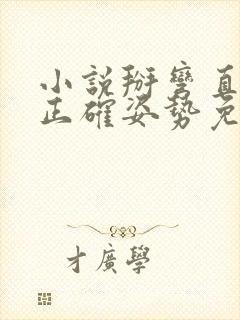 小說掰彎直
正確姿勢免
才廣學